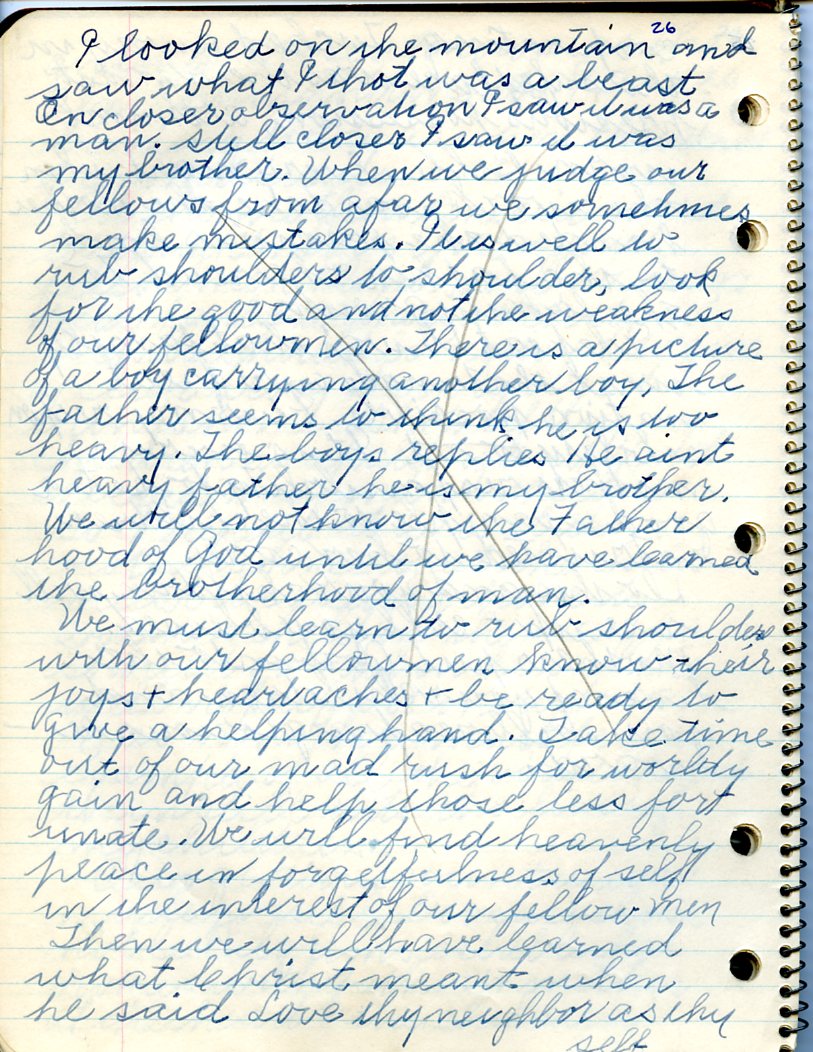 26
I looked on the mountain and
saw what I thot was a beast
On closer observation I saw it was a
man. Still closer I saw it was
my brother. When we judge our
fellows from afar we sometimes
make mistakes. It is well to
rub shoulders to shoulder, look
for the good and not the weakness
of our fellowmen. There is a picture
of a boy carrying another boy, The
father seems to think he is too
heavy. The boys replies He aint
heavy father he is my brother.
We will not know the Father
hood of God until we have learned
the brotherhood of man.
We must learn to rub shoulders
with our fellowmen know their
joys + heartaches + be ready to
give a helping hand. Take time
out of our mad rush for worldy
gain and help those less fort
unate. We will find heavenly
peace in forgetfulness of self
in the interest of our fellow men
Then we will have learned
what Christ meant when
he said Love thy neighbor as thy
self